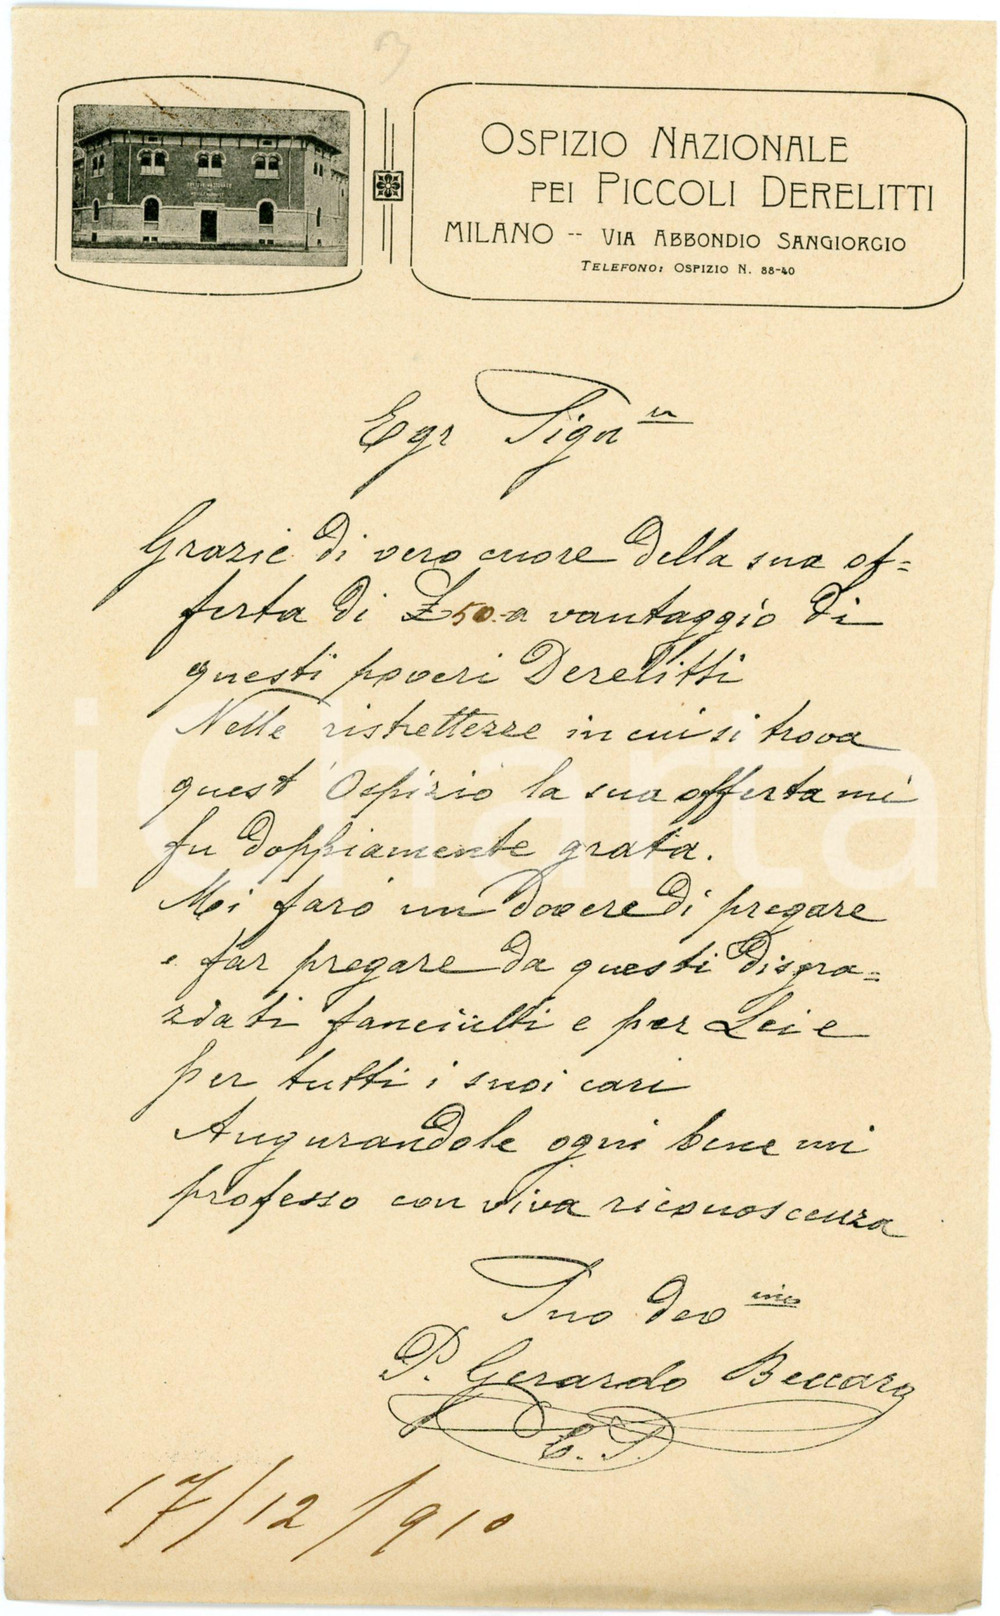 OSPIZIO NAZIONALE
PEI PICCOLI DERELITTI
MILANO -- VIA ABBONDIO SANGIORGIO
TELEFONO: OSPIZIO N. 88-40
Egr Sign re
Grazie di vero cuore della sua of=
ferta di £ 50 - a vantaggio di
questi poveri Derelitti
Nelle ristrettezze in cui si trova
quest' Ospizio la sua offerta mi
fu doppiamente grata.
Mi farò un dovere di pregare
e far pregare da questi disgra=
ziati fanciulli e per Lei e
per tutti i suoi cari
Augurandole ogni bene mi
professo con viva riconoscenza
Suo dev mo
P. Gerardo Beccaro
C. S.
17/12/910
icharta